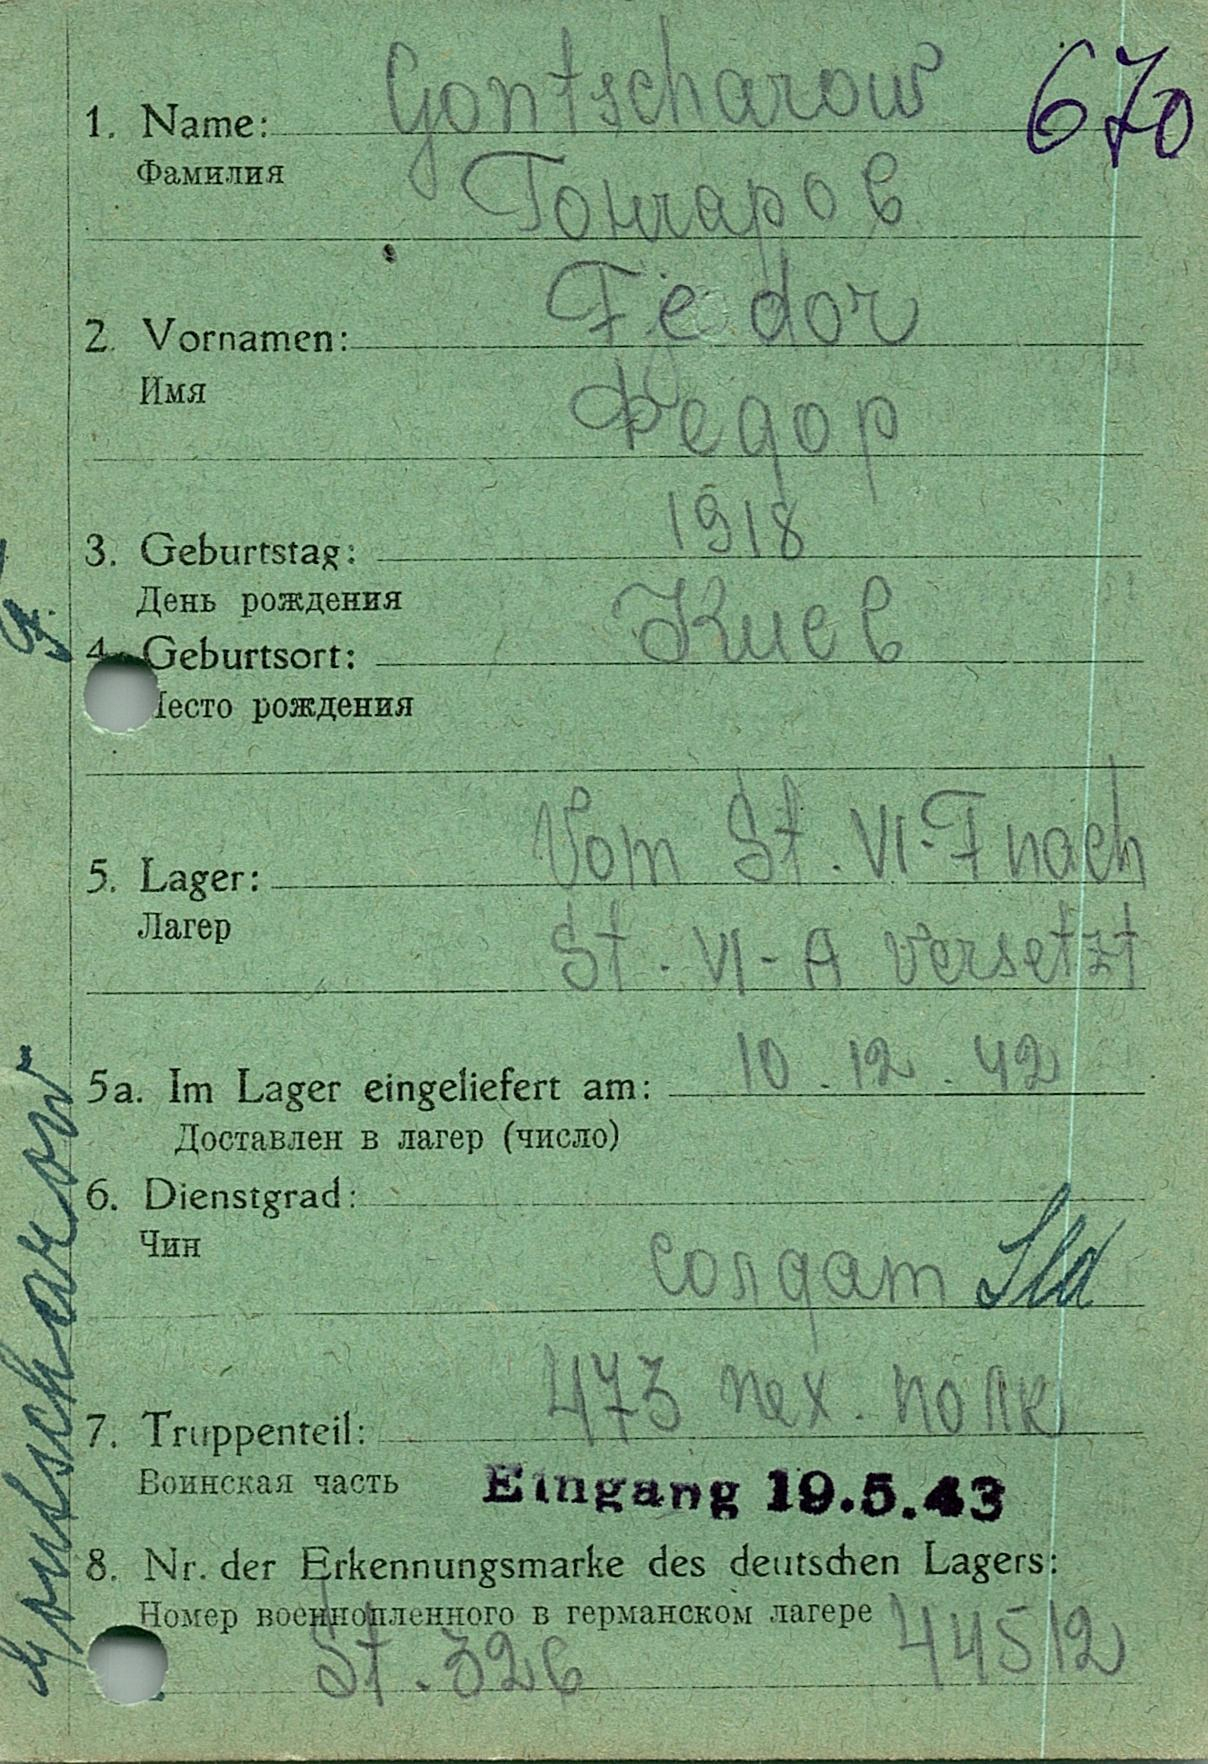 Gontscharow 670
1. Name:
Фамилия
Гончаров
Fedor
2. Vornamen:
Имя
Федор
1918
3. Geburtstag:
День рождения
Киев
4. Geburtsort:
Место рождения
Vom St. VI-F nach
5. Lager:
Лагер
St. VI-A versetzt
5a. Im Lager eingeliefert am: 10.12.42
Доставлен в лагер (число)
6. Dienstgrad:
Чин
солдат Sld
473 пех. полк
7. Truppenteil:
Воинская часть
Eingang 19.5.43
8. Nr. der Erkennungsmarke des deutschen Lagers:
Номер военнопленного в германском лагере
St. 326 44512
Gontscharow F.